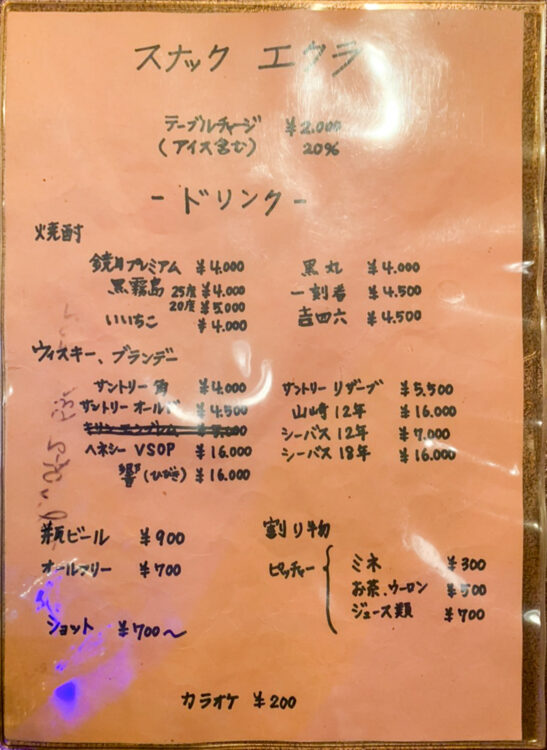 スナック エクラ
テーブルチャージ ￥2.000
(アイス含む) 20%
- ドリンク -
焼酎
鏡月プレミアム ￥4.000
黒霧島 25度 ￥4.000
20度 ￥5.000
いいちこ ￥4.000
黒丸 ￥4.000
一刻者 ￥4.500
吉四六 ￥4.500
ウィスキー、ブランデー
サントリー 角 ￥4.000
サントリー オールド ￥4.500
ヘネシー VSOP ￥16.000
響(ひびき) ￥16.000
サントリー リザーブ ￥5,500
山崎 12年 ￥16.000
シーバス 12年 ￥7.000
シーバス 18年 ￥16.000
瓶ビール ￥900
オールフリー ￥700
ショット ￥700～
割り物
ピッチャー
ミネ ￥300
お茶、ウーロン ￥500
ジュース類 ￥700
カラオケ ￥200